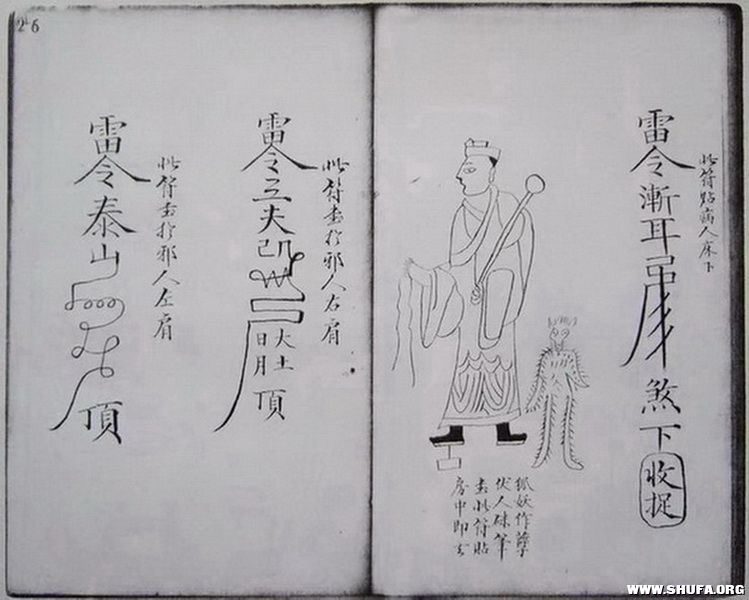 此符貼病人床下
雷令漸耳
煞下
收捉
狐妖作孽
伏人硃筆
書此符貼
房中即去
此符書於邪人右肩
雷令
大土
日月
頂
此符書於邪人左肩
雷令泰山
頂
26
WWW.SHUFA.ORG